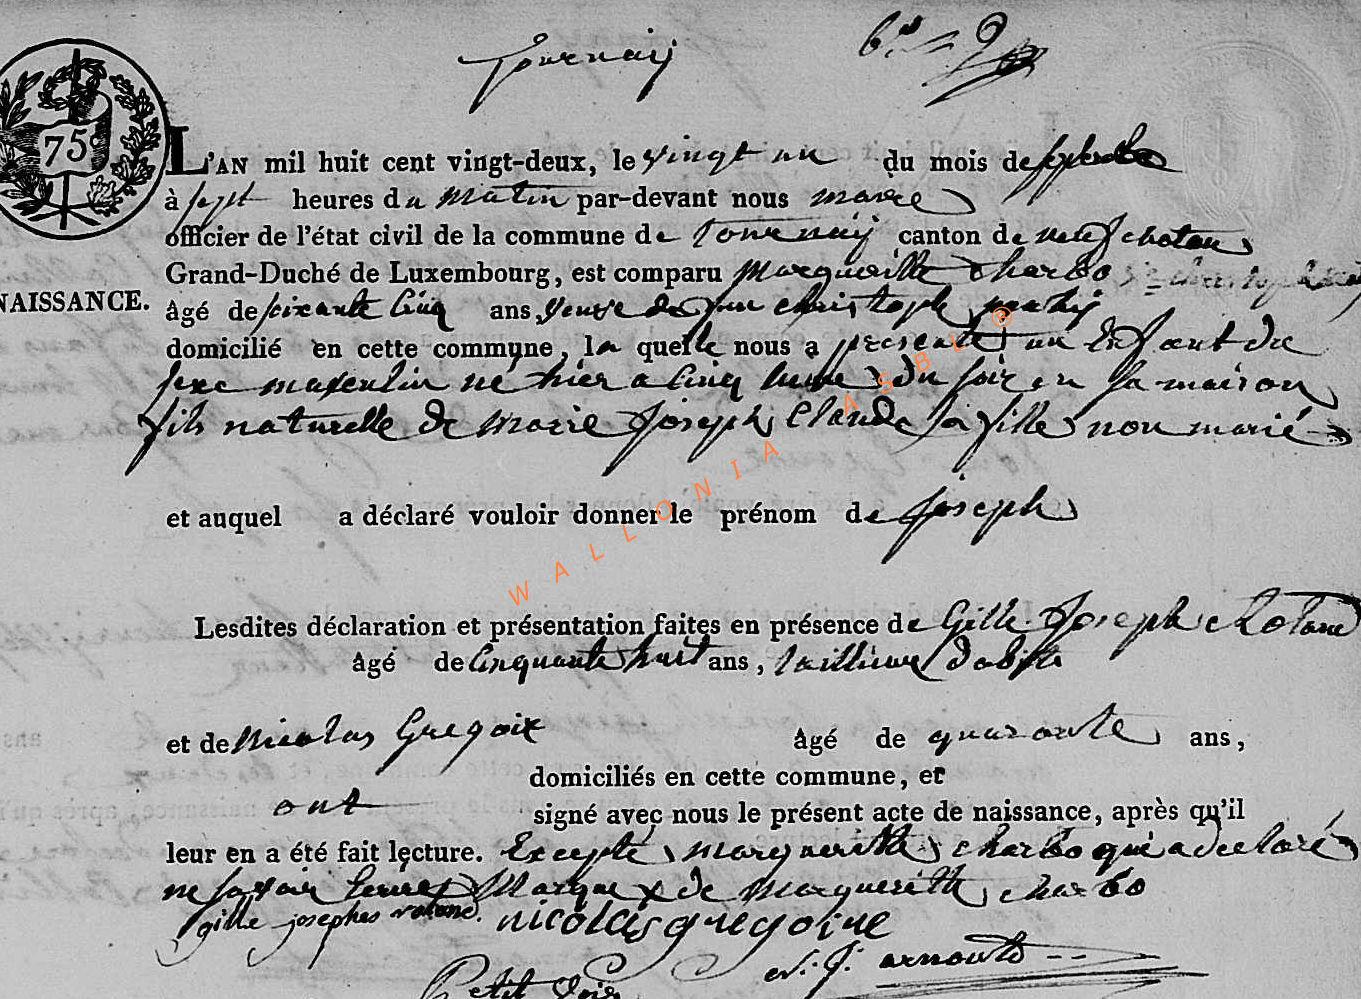 Tournay
75
L'AN mil huit cent vingt-deux, le vingt un du mois de septembre
à sept heures du matin par-devant nous maire
officier de l'état civil de la commune de Tournay canton de neufchatau
Grand-Duché de Luxembourg, est comparu margueritte charlo
NAISSANCE.
âgé de soixante cinq ans, veuve de feu christoph
domicilié en cette commune, la quelle nous a presenté un Enfant du
sexe masculin né hier a cinq heure du soir en sa maison
fils naturelle de marie joseph Claude sa fille non marié
et auquel a déclaré vouloir donner le prénom de joseph
WALLONIA ASBL ®
Lesdites déclaration et présentation faites en présence de Gille Joseph
âgé de cinquante huit ans, tailleur d'abits
et de Nicolas Gregoir âgé de quarante ans,
domiciliés en cette commune, et
ont signé avec nous le présent acte de naissance, après qu'il
leur en a été fait lecture. Excepté margueritte charlo qui a declaré
ne savoir Marque x de margueritte charlo
gille josephe rolane. nicolas gregoire
Petit Voir n. j. arnould